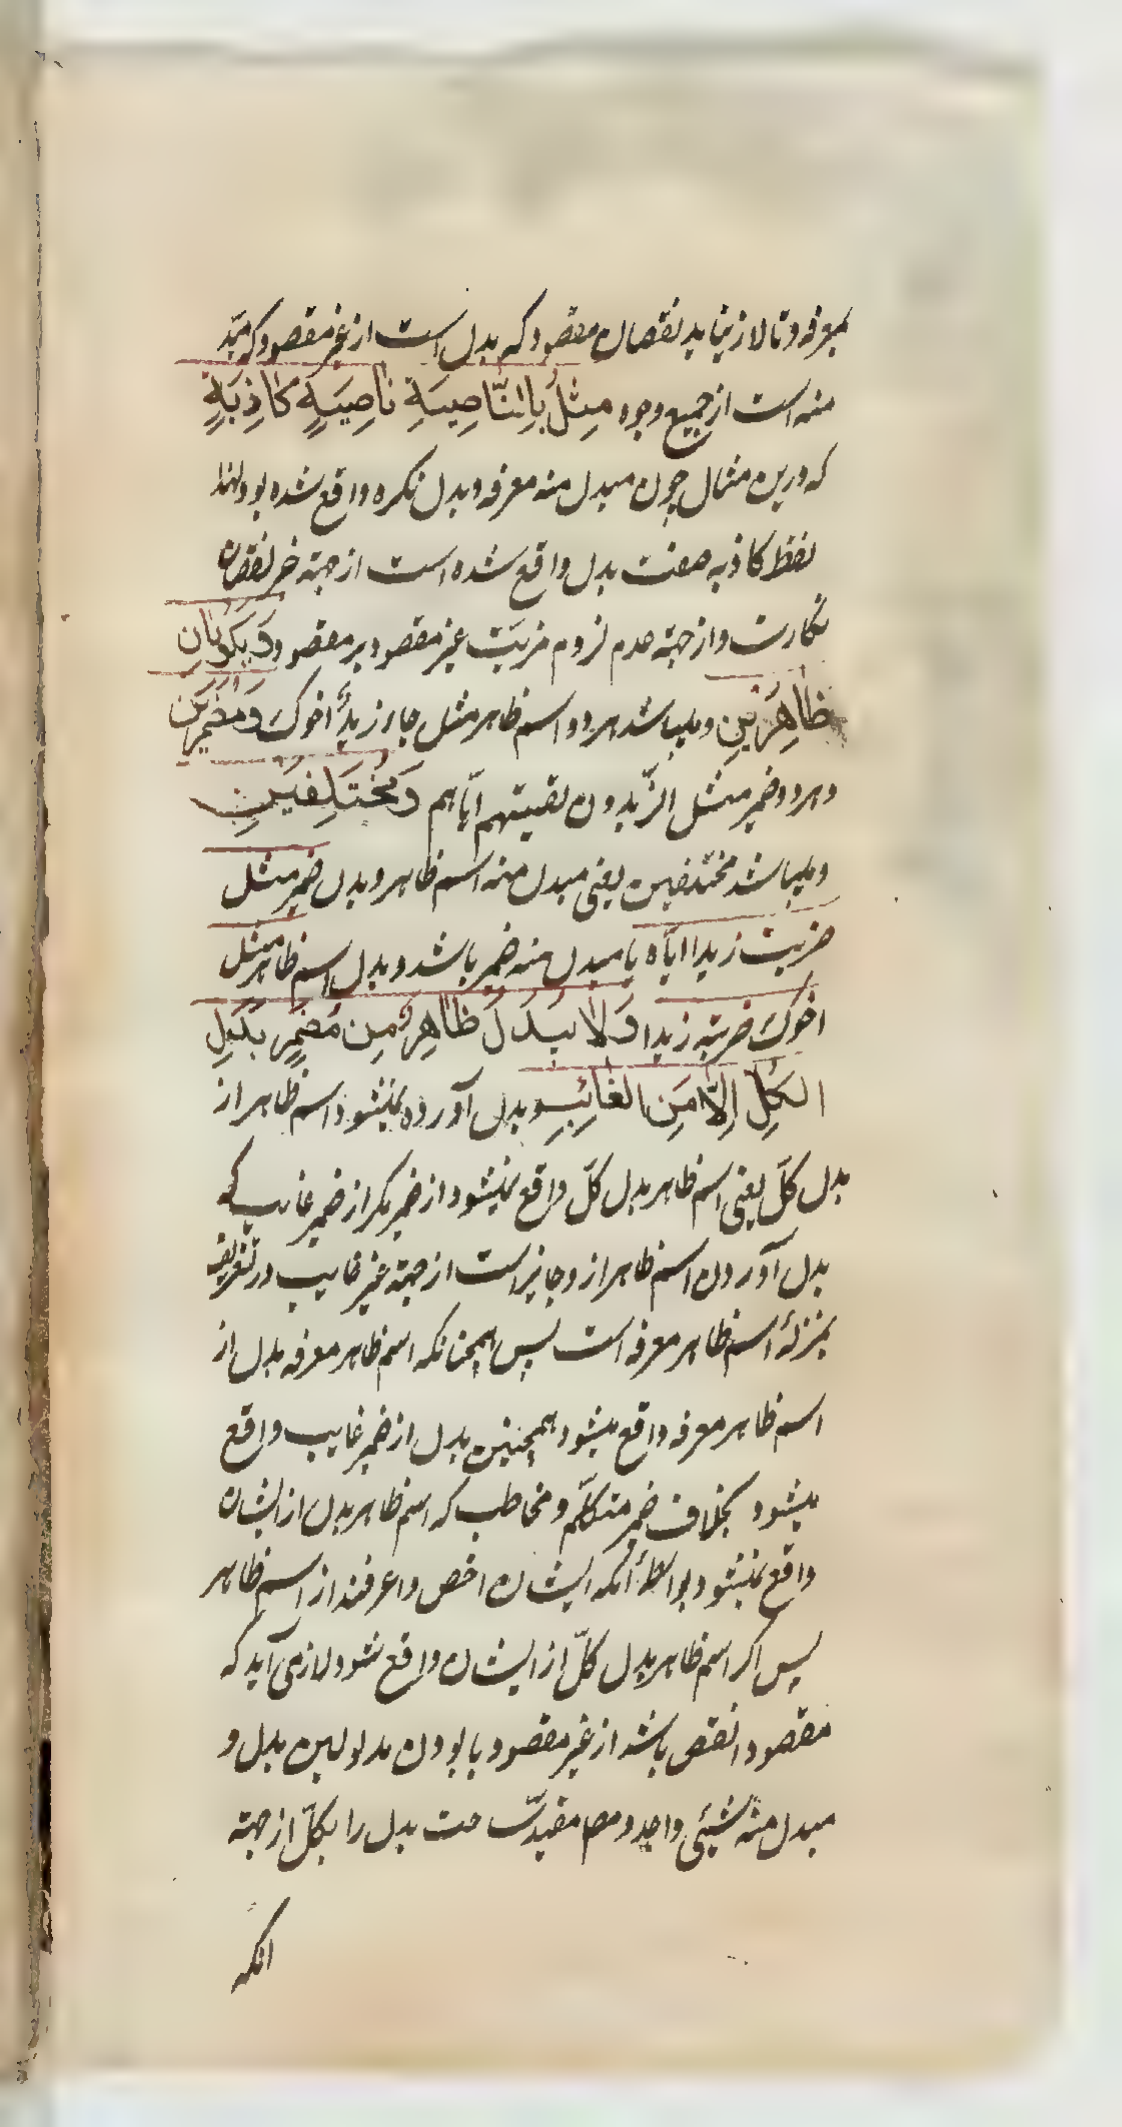 بمعرفه و تا لازم نیاید نقصان مقصود که بدل است از غیر مقصود که مبدل
منه است از جمیع وجوه مِثلُ بِالنَّاصِیَةِ نَاصِیَةٍ کَاذِبَةٍ
که درین مثال چون مبدل منه معرفه و بدل نکره واقع شده بود لهذا
لفظ کاذبه صفت بدل واقع شده است از جهته جبر نقصان
نکارت و از جهته عدم لزوم مزیّت غیر مقصود بر مقصود وَیَکُونَانِ
ظَاهِرَیْنِ و میباشد هر دو اسم ظاهر مثل جاء زیدٌ اخوک وَ مُضمَرَیْنِ
و هر دو ضمیر مثل الزّیدون لقیتهم ایّاهم وَ مُختَلِفَیْنِ
و میباشد مختلفین یعنی مبدل منه اسم ظاهر و بدل ضمیر مثل
ضربت زیدا ایّاه یا مبدل منه ضمیر باشد و بدل اسم ظاهر مثل
اخوک ضربته زیدا وَ لا یُبدَلُ ظَاهِرٌ مِن مُضمَرٍ بَدَلَ
الکُلِّ اِلّا مِنَ الغَائِبِ و بدل آورده نمیشود اسم ظاهر از
بدل کلّ یعنی اسم ظاهر بدل کلّ واقع نمیشود از ضمیر مکر از ضمیر غایب که
بدل آوردن اسم ظاهر از و جایز است از جهته ضمیر غایب در تعریف
بمنزلهٔ اسم ظاهر معرفه است پس همچنانکه اسم ظاهر معرفه بدل از
اسم ظاهر معرفه واقع میشود همچنین بدل از ضمیر غایب واقع
میشود بخلاف ضمیر متکلّم و مخاطب که اسم ظاهر بدل از ایشان
واقع نمیشود بواسطهٔ آنکه ایشان اخص و اعرفند از اسم ظاهر
پس اکر اسم ظاهر بدل کلّ از ایشان واقع شود لازم می آید که
مقصود انقص باشد از غیر مقصود با بودن مدلولین بدل و
مبدل منه شیئی واحد و مص مقید ساخت بدل را بکلّ از جهته
انکه